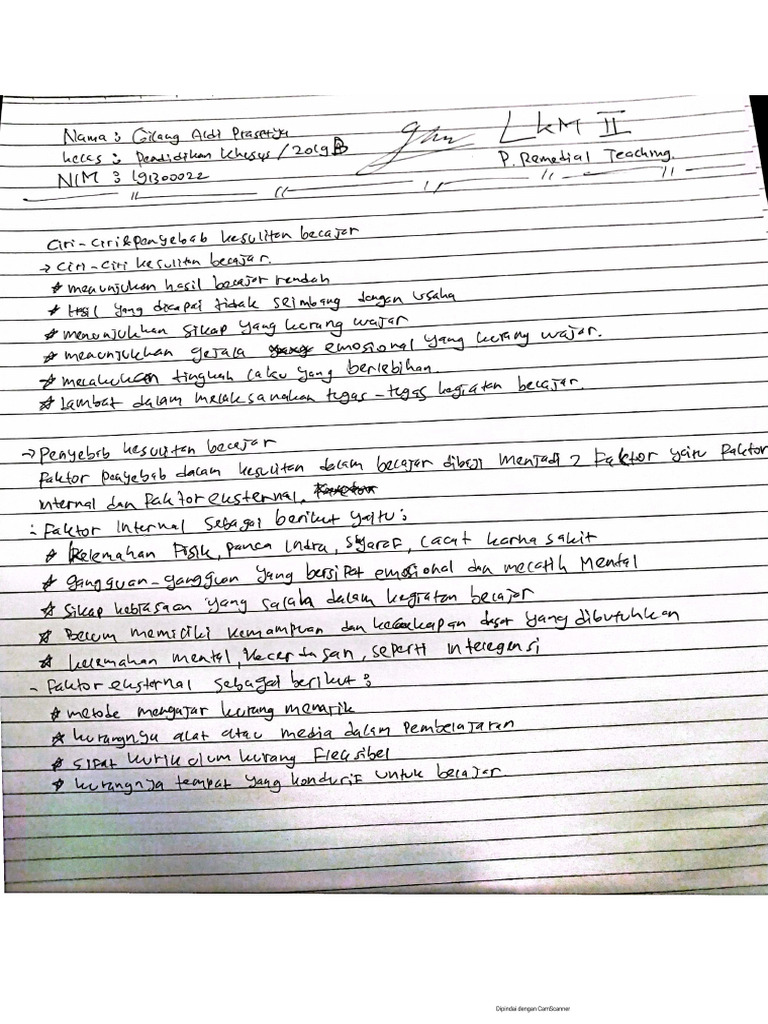 Nama : Gilang Aldi Prasetya
kelas : Pendidikan Khusus / 2019 B
NIM : 191300022
LKM II
P. Remedial Teaching.
Ciri-ciri & Penyebab kesulitan belajar
→ Ciri-ciri kesulitan belajar.
* menunjukan hasil belajar rendah
* Hasil yang dicapai tidak seimbang dengan usaha
* menunjukkan sikap yang kurang wajar
* menunjukkan gejala emosional yang kurang wajar.
* melakukan tingkah laku yang berlebihan.
* Lambat dalam melaksanakan tugas-tugas kegiatan belajar.
→ Penyebab kesulitan belajar
Faktor penyebab dalam kesulitan dalam belajar dibagi menjadi 2 Faktor yaitu Faktor
internal dan Faktor eksternal.
- Faktor internal sebagai berikut yaitu :
* kelemahan Fisik, panca indra, syaraf, cacat karna sakit
* gangguan-gangguan yang bersifat emosional dan melatih mental
* Sikap kebiasaan yang salah dalam kegiatan belajar
* Belum memiliki kemampuan dan kecakapan dasar yang dibutuhkan
* kelemahan mental, kecerdasan, seperti intelegensi
- Faktor eksternal sebagai berikut :
* metode mengajar kurang menarik
* kurangnya alat atau media dalam pembelajaran
* Sifat kurikulum kurang Fleksibel
* kurangnya tempat yang kondusif untuk belajar.
Dipindai dengan CamScanner